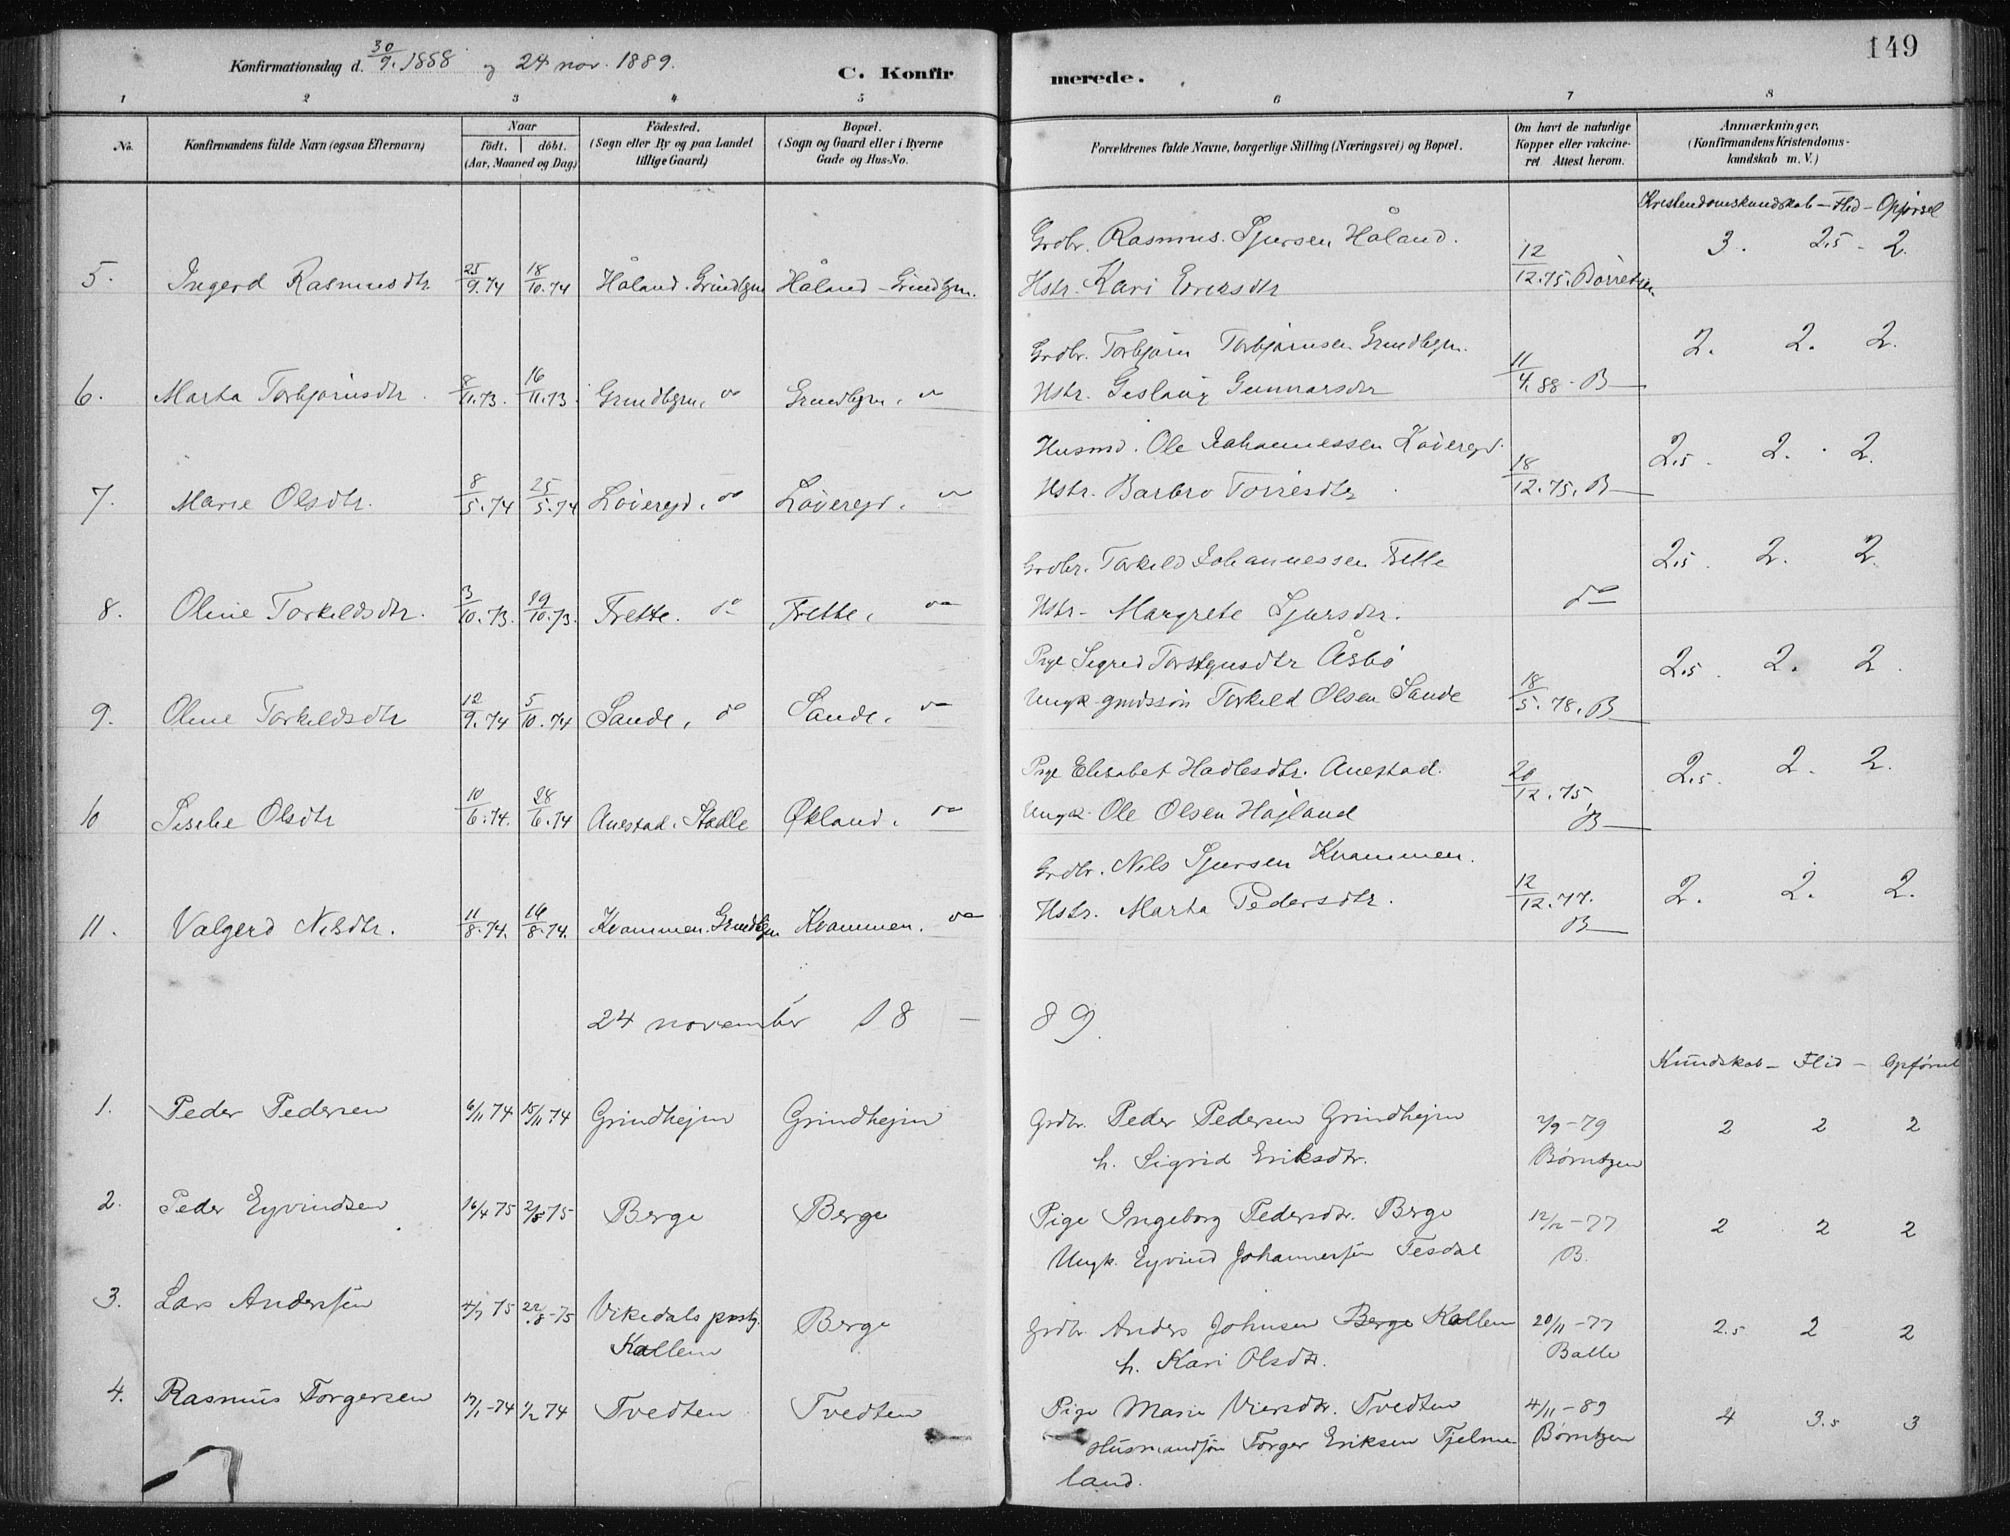 149
Konfirmationsdag d. 30/9. 1888 og 24 nov. 1889.
C. Konfirmerede.
1 2 3 4 5 6 7 8
No.
Konfirmandens fulde Navn (ogsaa Efternavn)
Naar
födt. döbt.
(Aar, Maaned og Dag)
Födested.
(Sogn eller By og paa Landet
tillige Gaard)
Bopæl.
(Sogn og Gaard eller i Byerne
Gade og Hus-No.
Forældrenes fulde Navne, borgerlige Stilling (Næringsvei) og Bopæl.
Om havt de naturlige
Kopper eller vakcine-
ret Attest herom.
Anmærkninger.
(Konfirmandens Kristendoms-
kundskab m. V.)
Kristendomskundskab - Flid - Opførsel
Grdbr. Rasmus Sjursen Håland. 3. 2.5 - 2.
5. Ingerd Rasmusdtr 25/9.74 18/10.74 Håland. Grindhgm Håland - Grindhgm. Hstr. Kari Eriksdtr 12/12.75.
Grdbr. Torbjørn Torbjørnsen Grindhgm. 2. 2. 2.
6. Marta Torbjørnsdtr. 8/11.73. 16/11.73. Grindhgm. do Grindhgm. do Hstr. Geslaug Gunnarsdtr 11/4.88 - B
Husmd. Ole Johannessen Løvergd. 2.5. 2. 2.
7. Marie Olsdtr. 8/5.74 25/5.74 Løveregd. do Løveregd. do Hstr. Barbro Torresdtr 18/12.75. B
Grdbr. Torkild Johannessen Frette 2.5. 2. 2.
8. Oline Torkildsdtr. 3/10.73. 29/10.73. Frette. do Frette. do Hstr. Margrete Sjursdtr. do
Pige Sigrid Torsteinsdtr Åsbø 2.5. 2. 2.
9. Oline Torkildsdtr 12/9.74 5/10.74 Sande. do Sande. do Ungk. gmdssøn Torkild Olsen Sande 18/5.78. B
Pige Elisabet Hadlesdtr. Anestad. 2.5. 2. 2.
10 Olsdtr 10/6.74. 28/6.74 Anestad. Skodle Økland. do Ungk. Ole Olsen Høgland 20/12.75, B
Grdbr. Nils Sjursen Kvammen. 2. 2. 2.
11. Valgerd Nilsdtr. 11/8.74. 16/8.74. Kvammen. Grindhgm Kvammen. do Hstr. Marta Pedersdtr. 12/12.77. B
24 november 18 - 89.
Kundskab - Flid - Opførsel
1. Peder Pedersen 6/11 74 15/11 74 Grindhejm Grindhejm Grdbr. Peder Pedersen Grindhejm 2/9-79 2 2 2
h. Sigrid Eriksdtr. Børntzen
2. Peder Eyvindsen 16/4 75 2/5 75 Berge Berge Pige Ingeborg Pedersdtr. Berge 12/12-77 2 2 2
Ungk. Eyvind Johannessen Tesdal B.
3. Lars Anderssen 4/7 75 22/8-75 Vikedals prstg. Kallem Berge Grdbr. Anders Johnsen Berge Kallem 20/11-77 2.5 2 2
h. Kari Olsdtr. Balle
4. Rasmus Torgersen 17/1-74 1/2 74 Tvedten Tvedten Pige Marie Viersdtr. Tvedten 4/11-89 4 3.5 3
Husmandsøn Torger Eriksen Tjelme- Børntzen
land.